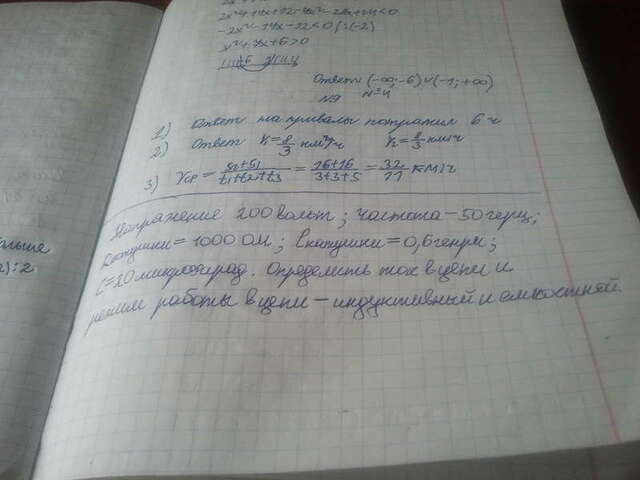 2x²+14x+12-4x²-28x-24<0
-2x²-14x-12<0 |:(-2)
x²+7x+6>0
Ответ (-∞;-6)∪(-1;+∞)
№4
№9
1) Ответ на привалы потратил 6 ч
2) Ответ V₁=8/3 км/ч V₂=8/3 км/ч
3) Vср = S₁+S₁/t₁+t₂+t₃ = 16+16/3+3+5 = 32/11 км/ч
Напряжение 200 вольт; частота-50 герц;
Rкатушки=1000 Ом; Lкатушки=0,6 генри;
C=20 микрофарад. Определить ток в цепи и
режим работы в цепи - индуктивный и емкостной.
):2